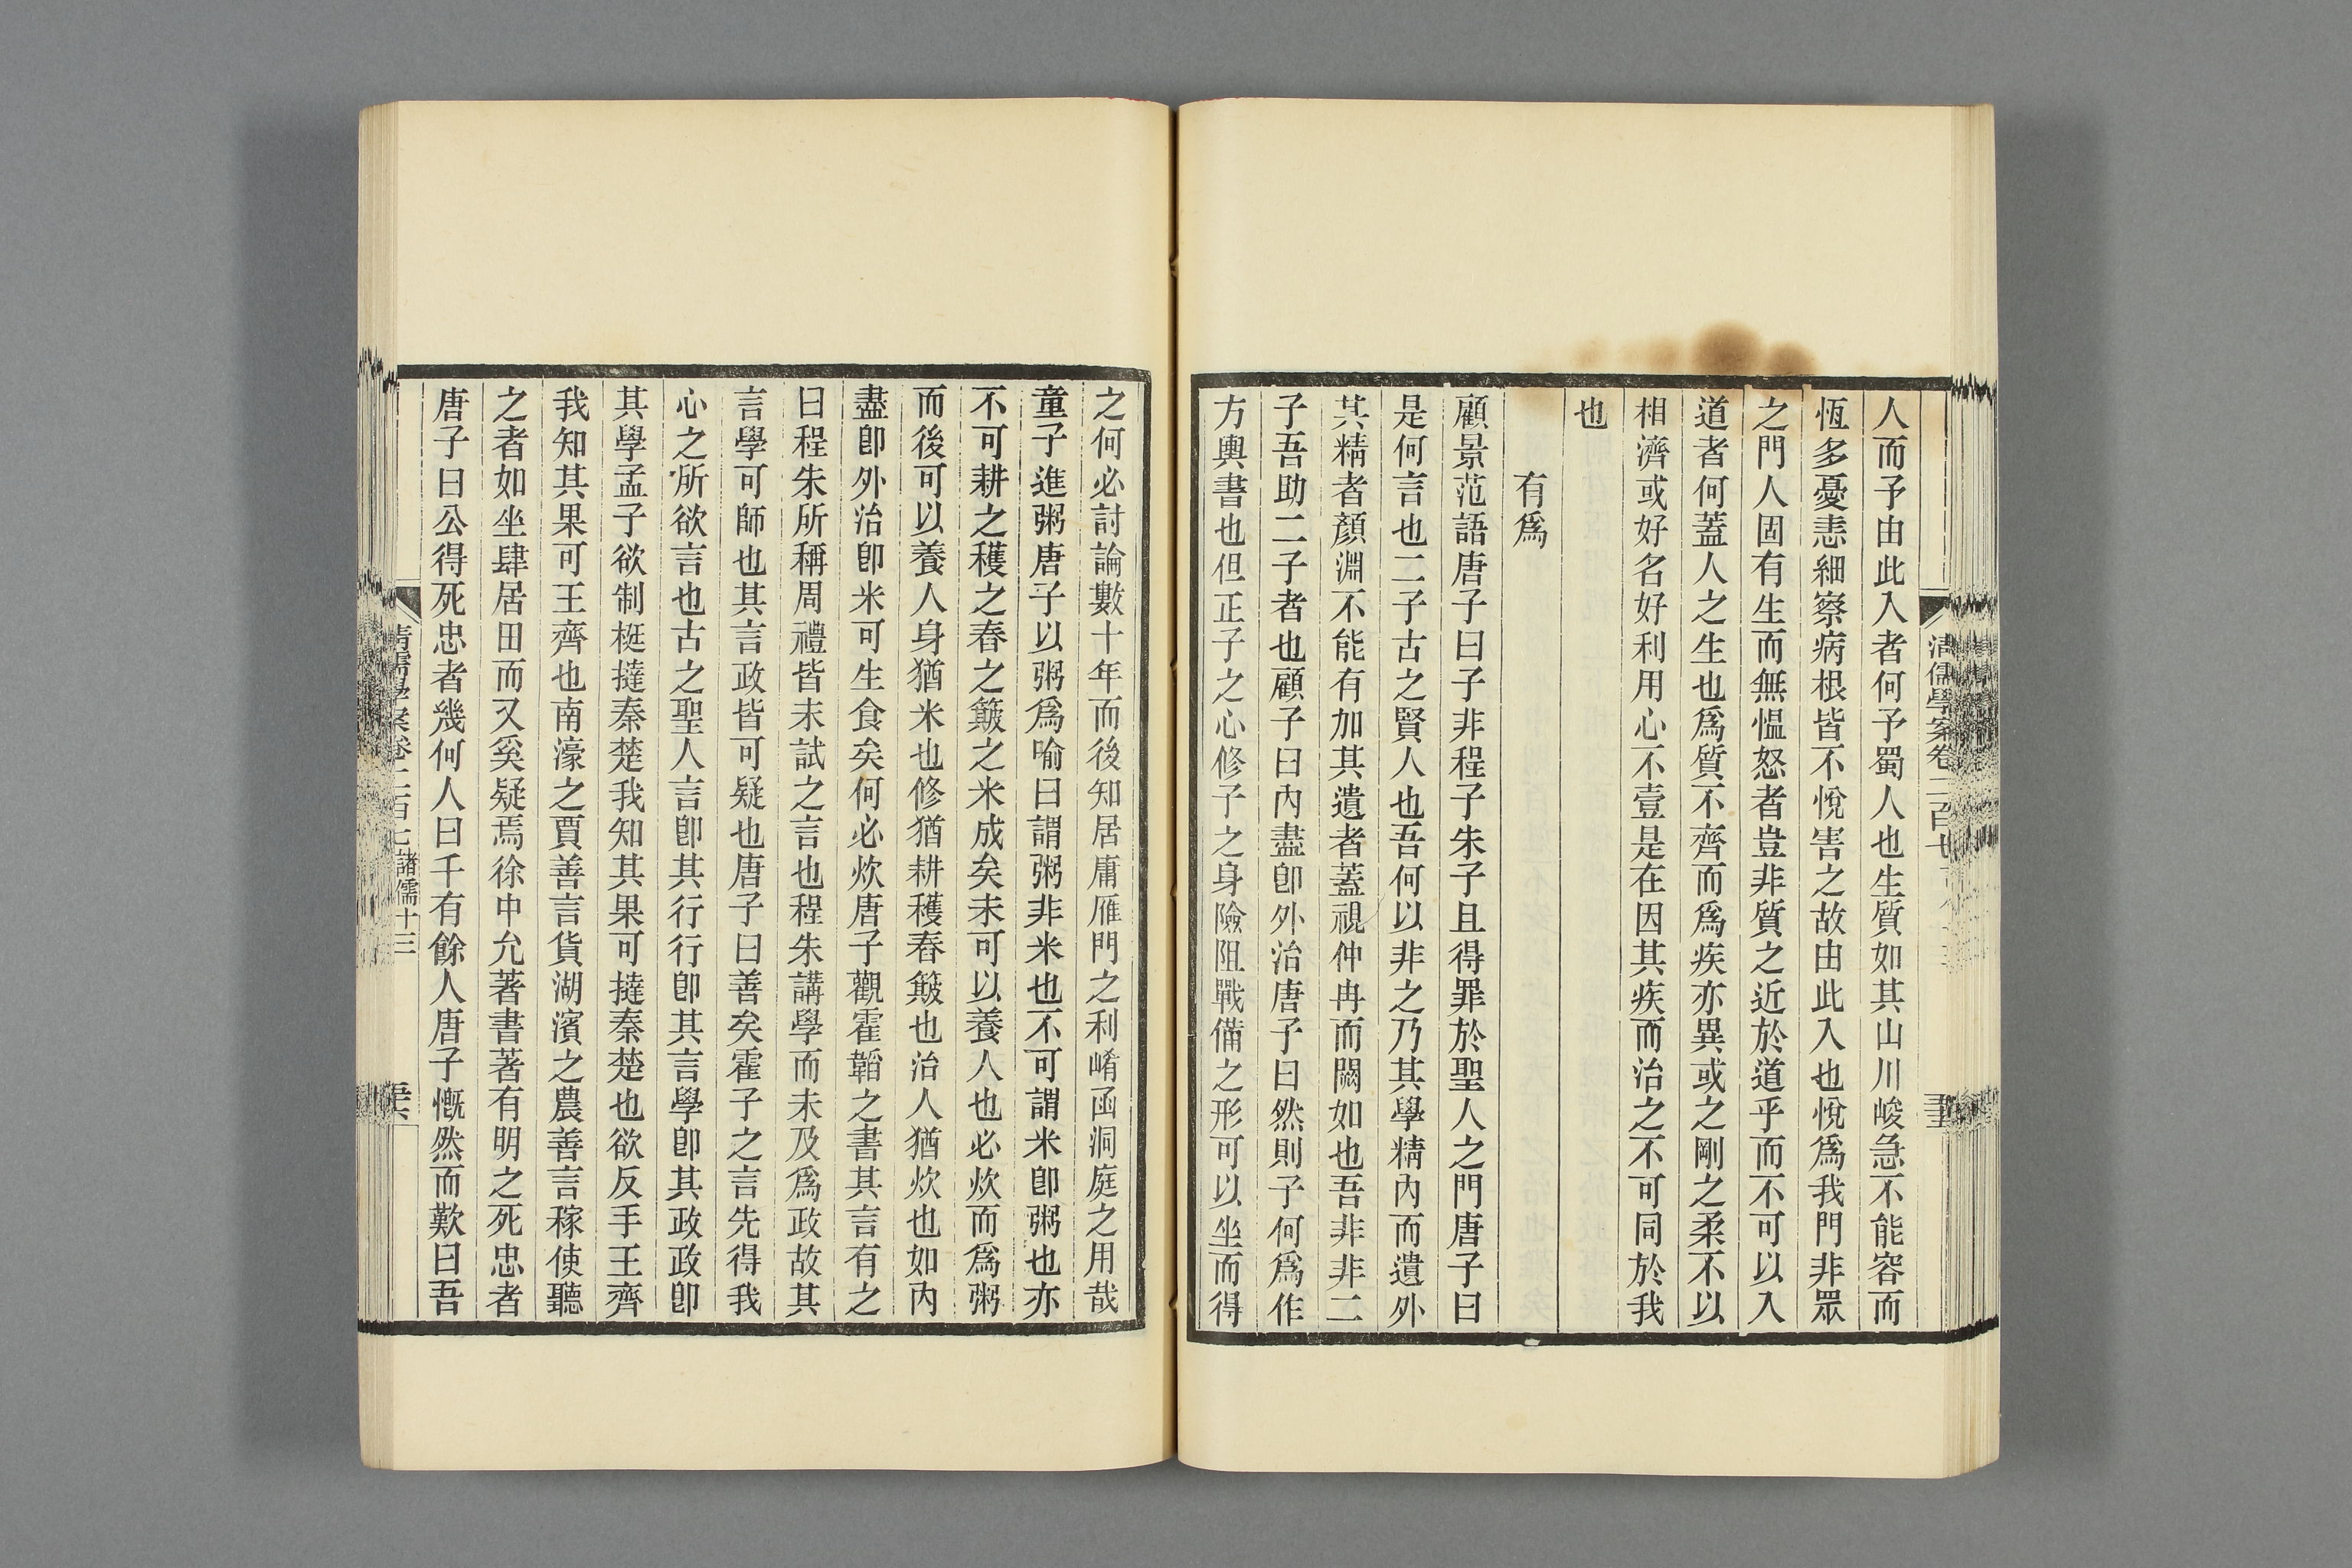 清儒學案卷二百七
人而予由此入者何予蜀人也生質如其山川峻急不能容而
恆多憂恚細察病根皆不悅害之故由此入也悅爲我門非眾
之門人固有生而無慍怒者豈非質之近於道乎而不可以入
道者何蓋人之生也爲質不齊而爲疾亦異或之剛之柔不以
相濟或好名好利用心不壹是在因其疾而治之不可同於我
也
有爲
顧景范語唐子曰子非程子朱子且得罪於聖人之門唐子曰
是何言也二子古之賢人也吾何以非之乃其學精內而遺外
其精者顏淵不能有加其遺者蓋視仲冉而闕如也吾非非二
子吾助二子者也顧子曰內盡卽外治唐子曰然則子何爲作
方輿書也但正子之心修子之身險阻戰備之形可以坐而得
之何必討論數十年而後知居庸雁門之利崤函洞庭之用哉
童子進粥唐子以粥爲喻曰謂粥非米也不可謂米卽粥也亦
不可耕之穫之舂之簸之米成矣未可以養人也必炊而爲粥
而後可以養人身猶米也修猶耕穫舂簸也治人猶炊也如內
盡卽外治卽米可生食矣何必炊唐子觀霍韜之書其言有之
曰程朱所稱周禮皆未試之言也程朱講學而未及爲政故其
言學可師也其言政皆可疑也唐子曰善矣霍子之言先得我
心之所欲言也古之聖人言卽其行行卽其言學卽其政政卽
其學孟子欲制梃撻秦楚我知其果可撻秦楚也欲反手王齊
我知其果可王齊也南濠之賈善言貨湖濱之農善言稼使聽
之者如坐肆居田而又奚疑焉徐中允著書著有明之死忠者
唐子曰公得死忠者幾何人曰千有餘人唐子慨然而歎曰吾
清儒學案卷二百七 諸儒十三